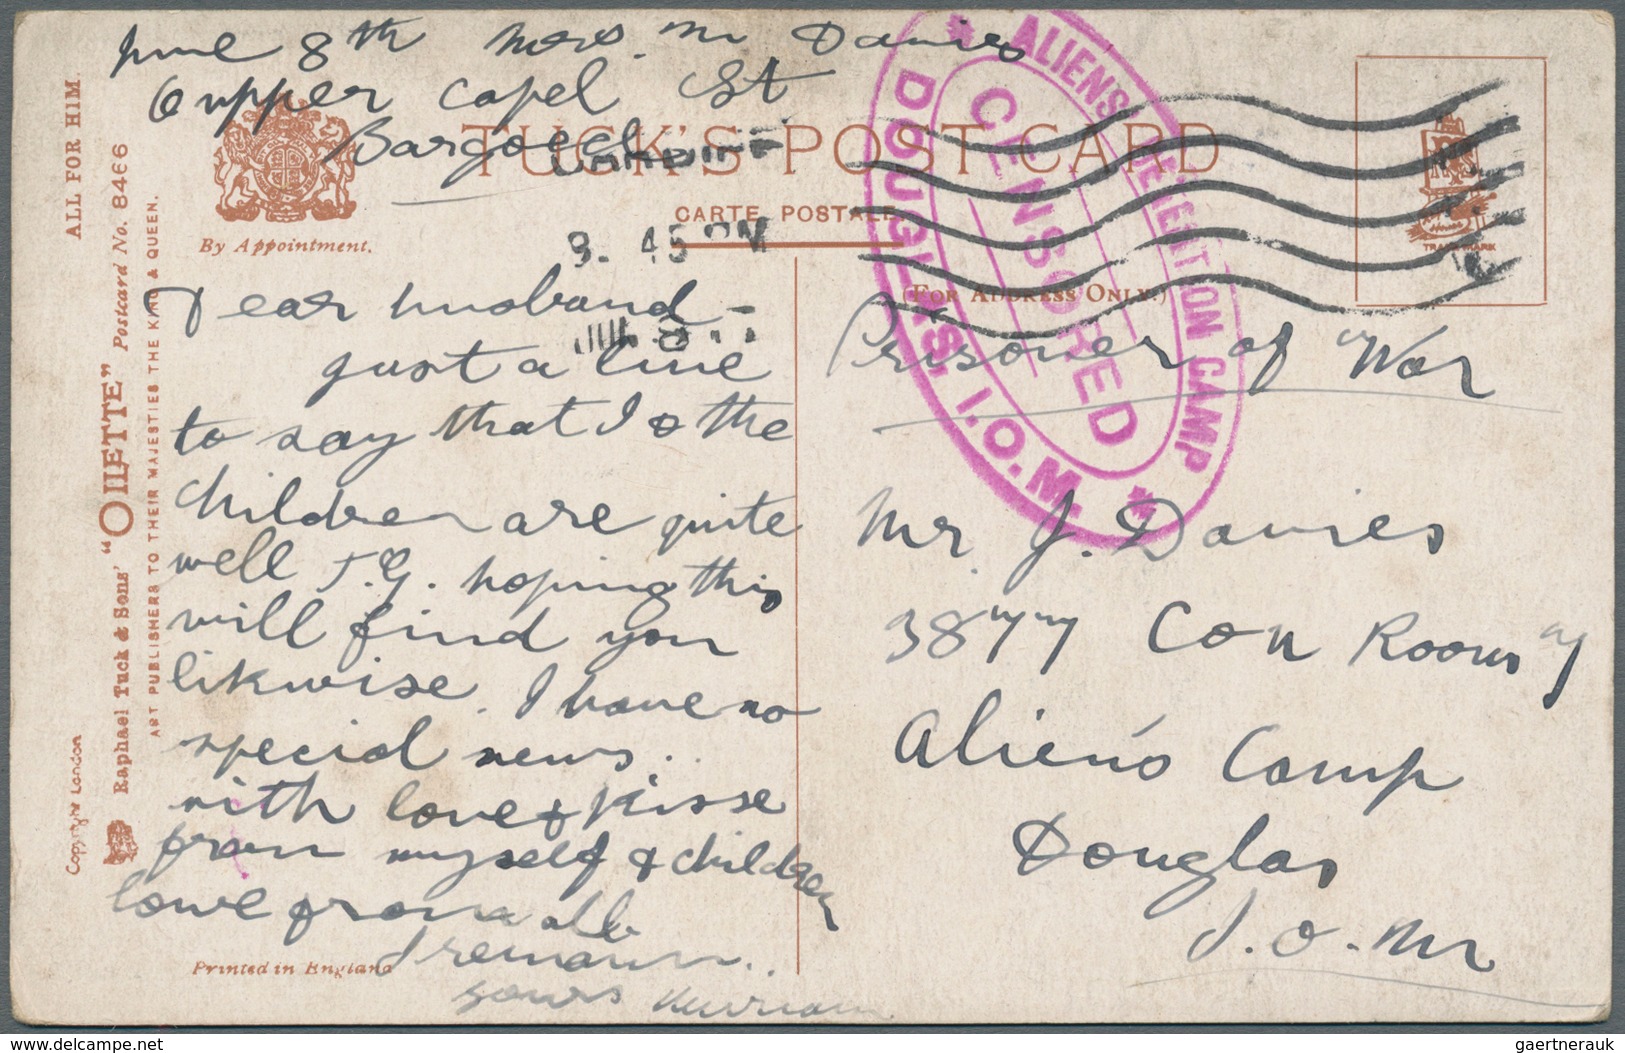 June 8th Mrs. M Davies
6 upper Capel St
Bargoed
TUCK'S POST CARD
CARTE POSTALE
(FOR ADDRESS ONLY.)
By Appointment.
ALL FOR HIM.
Raphael Tuck & Sons' "OILETTE" Postcard No. 8466
ART PUBLISHERS TO THEIR MAJESTIES THE KING & QUEEN.
Copyright London
CARDIFF
3. 45 PM
ALIENS DETENTION CAMP
CENSORED
DOUGLAS, I.O.M.
TRADE MARK
Dear husband –
just a line
to say that I & the
children are quite
well T.G. hoping this
will find you
likwise. I have no
special news..
with love & kisse
from myself & children
love from all
I remain..
yours
Printed in England
Prisoner of War
Mr. J. Davies
3877 Con Room 7
Alien's Camp
Douglas
I.O.M
delcampe.net
gaertnerauk